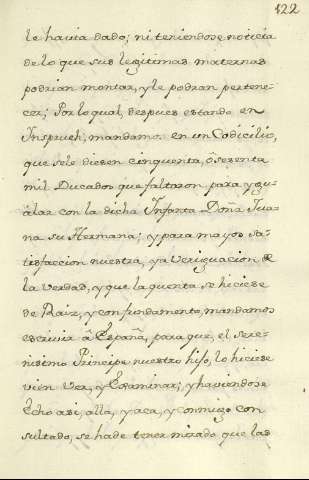 122
le havia dado; ni teniendose noticia
de lo que sus legitimas maternas
podrian montar, y le podran pertene-
cer; Por lo qual, despues estando en
Inspruch, mandamos en un Codicilio,
que se le diesen cinquenta, ô sesenta
mil Ducados que faltaron para ygu-
alar con la dicha Infanta Doña Jua-
na su Hermana; y para mayor sa-
tisfaccion nuestra, ya veriguacion de
la verdad, y que la quenta se hiciese
de Raiz, y con fundamento, mandamos
escrivir â España, para que, el sere-
nisimo Principe nuestro hijo, lo hiciese
vien ver, y Examinar; y haviendose
Echo asi, alla, y aca, y conmigo con
sultado, se ha de tener mirado que las